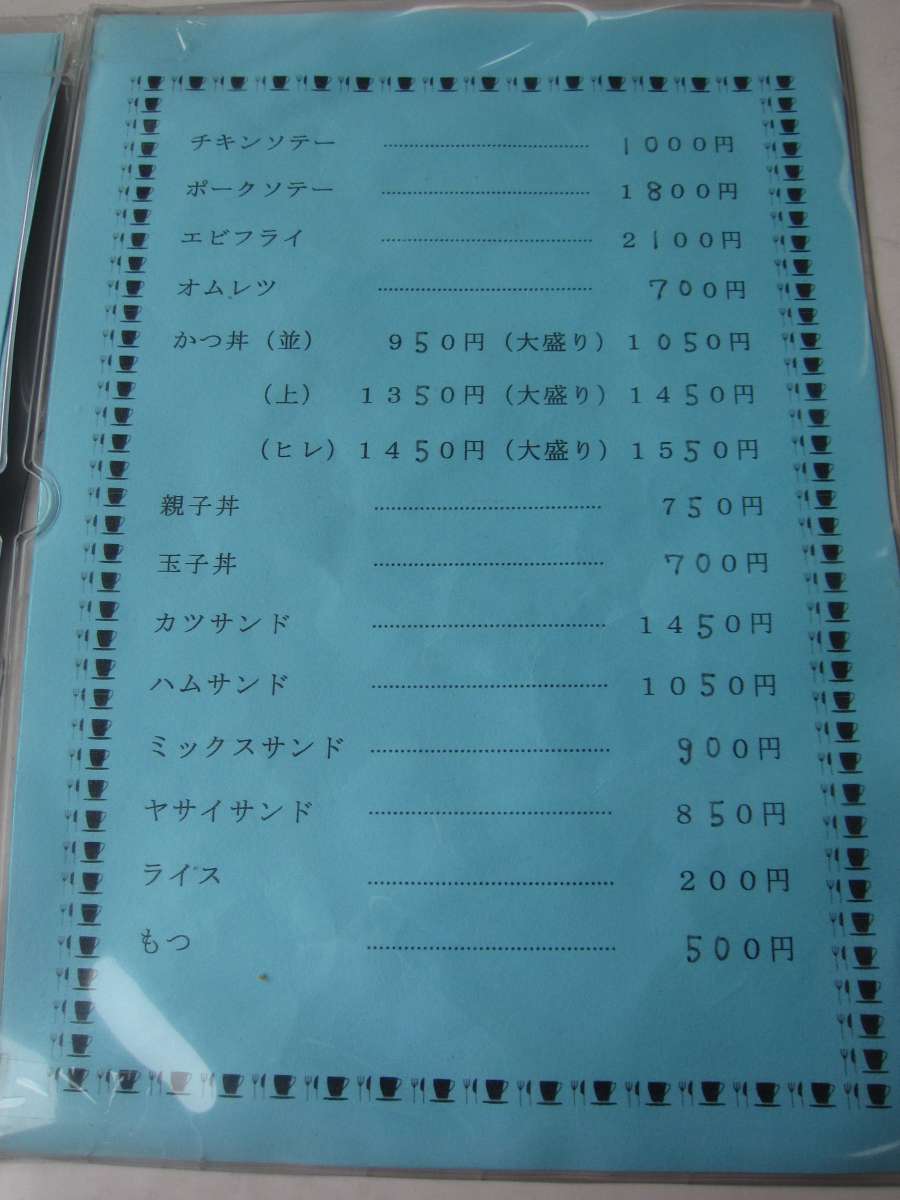 チキンソテー ………… １０００円
ポークソテー ………… １８００円
エビフライ ………… ２１００円
オムレツ ………… ７００円
かつ丼（並） ９５０円（大盛り）１０５０円
（上） １３５０円（大盛り）１４５０円
（ヒレ）１４５０円（大盛り）１５５０円
親子丼 ………… ７５０円
玉子丼 ………… ７００円
カツサンド ………… １４５０円
ハムサンド ………… １０５０円
ミックスサンド ………… ９００円
ヤサイサンド ………… ８５０円
ライス ………… ２００円
もつ ………… ５００円